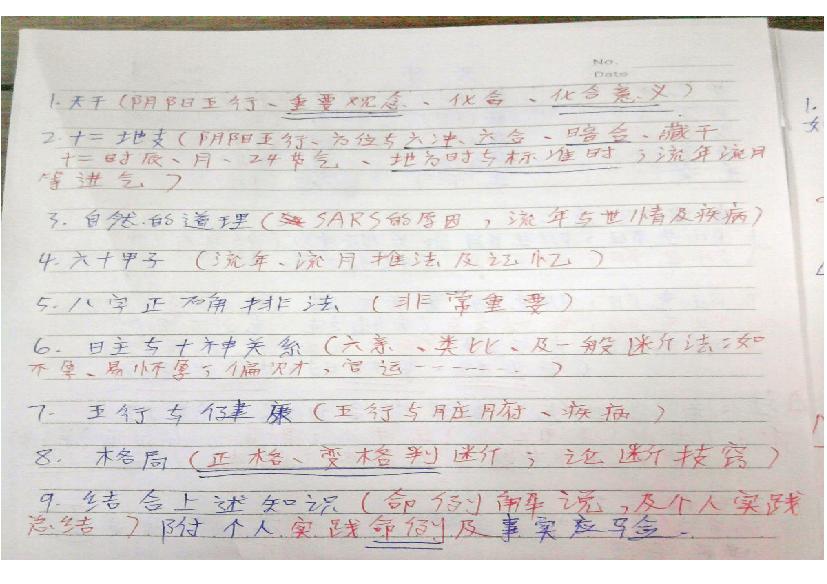 No.
Date
1.天干(阴阳五行、重要观念、化合、化合意义)
2.十二地支(阴阳五行、方位与六冲、六合、暗合、藏干
十二时辰、月、24节气、地方时与标准时;流年流月
等进气)
3.自然的道理(SARS的原因,流年与世情及疾病)
4.六十甲子(流年、流月推法及记忆)
5.八字正确排法(非常重要)
6.日主与十神关系(六亲、类比、及一般断法:如
不孕、易怀孕,偏财,官运-------.)
7.五行与健康(五行与脏腑、疾病)
8.格局(正格、变格判断;论断技窍)
9.结合上述知识(命例解说,及个人实践
总结)附个人实践命例及事实应验.
1.
女